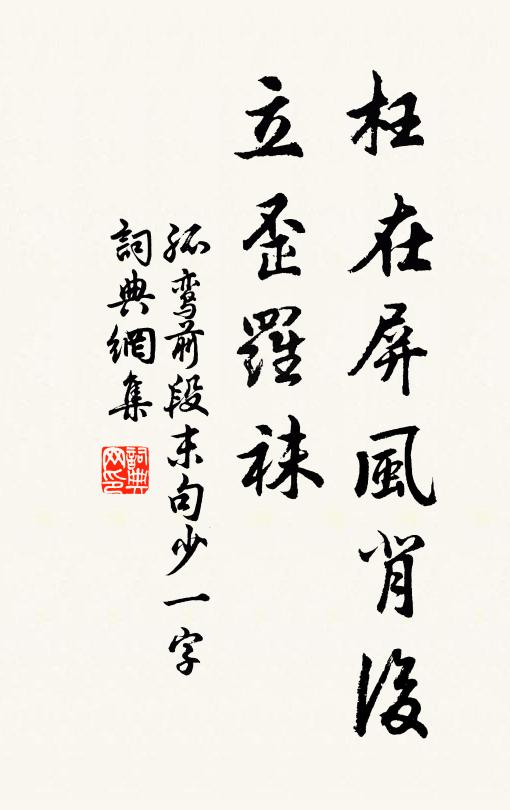 枉在屏風背後
立歪羅袜
孤鸾前段末句少一字
詞典網集
詞典網印